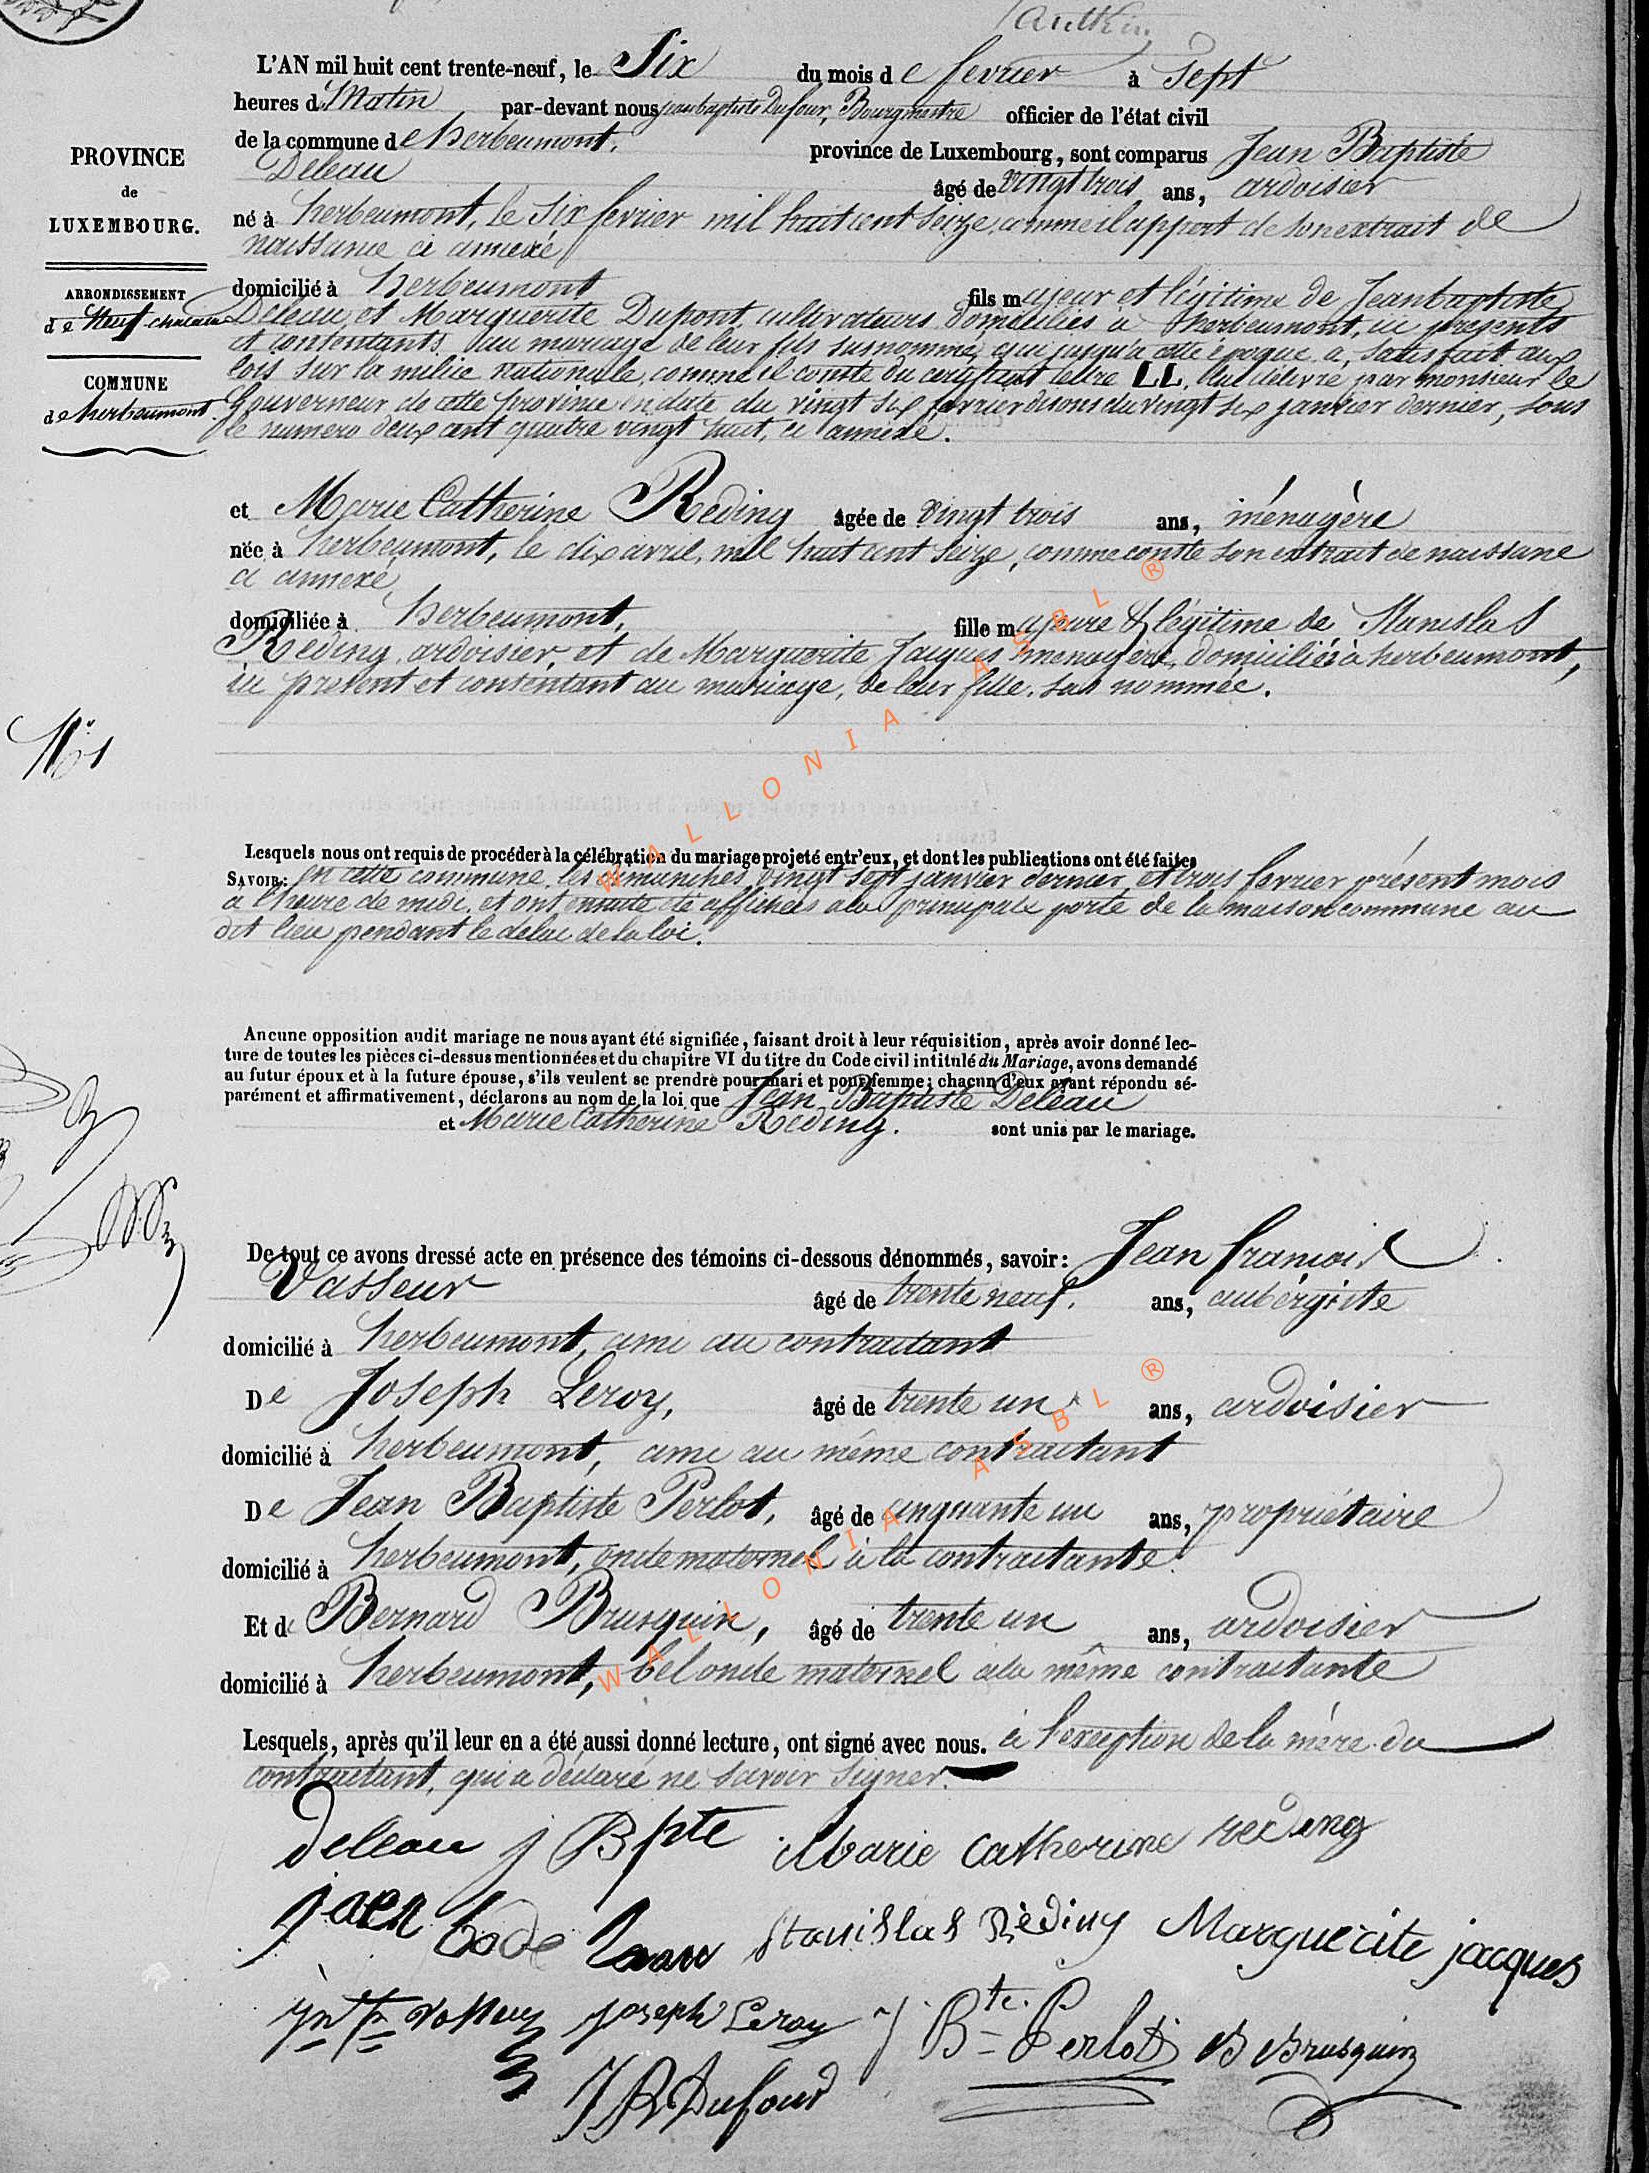 L'AN mil huit cent trente-neuf, le Six du mois de fevrier à Sept
heures d Matin par-devant nous jeanbaptiste Dufour, Bourgmestre officier de l'état civil
de la commune de herbeumont, province de Luxembourg, sont comparus Jean Baptiste
Deleau âgé de vingt trois ans, ardoisier
né à herbeumont, le Six fevrier mil huit cent seize, comme il appert de son extrait de
naissance ci annexé
domicilié à herbeumont fils majeur et légitime de Jeanbaptiste
Deleau et Marguerite Dupont cultivateurs domiciliés à herbeumont, ici presents
et contentants au mariage de leur fils susnommé, qui jusqu'à cette époque a satisfait aux
lois sur la milice nationale, comme il conste du certificat lettre LL. lui délivré par monsieur le
Gouverneur de cette province en date du vingt six fevrier disons du vingt six janvier dernier, sous
le numero deux cent quatre vingt huit, ci annexé.
PROVINCE
de
LUXEMBOURG.
ARRONDISSEMENT
de Neufchateau
COMMUNE
de herbeumont.
et Marie Catherine Reding âgée de vingt trois ans, ménagère
née à herbeumont, le dix avril, mil huit cent seize, comme conste son extrait de naissane
ci annexé,
domiciliée à herbeumont, fille majeure & légitime de Stanislas
Reding, ardoisier, et de Marguerite Jacques menagère, domiciliés à herbeumont,
ici present et contentant au mariage, de leur fille sus nommée.
N° 1
Lesquels nous ont requis de procéder à la célébration du mariage projeté entr'eux, et dont les publications ont été faites
SAVOIR: en cette commune, les dimanches vingt sept janvier dernier et trois fevrier présent mois
a l'heure de midi, et ont ensuite été affichées a la principale porte de la maison commune au
dit lieu pendant le delai de la loi.
Aucune opposition audit mariage ne nous ayant été signifiée, faisant droit à leur réquisition, après avoir donné lec-
ture de toutes les pièces ci-dessus mentionnées et du chapitre VI du titre du Code civil intitulé du Mariage, avons demandé
au futur époux et à la future épouse, s'ils veulent se prendre pour mari et pour femme; chacun d'eux ayant répondu sé-
parément et affirmativement, déclarons au nom de la loi que Jean Baptiste Deleau
et Marie Catherine Reding. sont unis par le mariage.
De tout ce avons dressé acte en présence des témoins ci-dessous dénommés, savoir: Jean francois
Vasseur âgé de trente neuf. ans, aubergiste
domicilié à herbeumont, ami au contractant
De Joseph Leroy, âgé de trente un ans, ardoisier
domicilié à herbeumont, ami au même contractant
De Jean Baptiste Perlot, âgé de cinquante un ans, propriétaire
domicilié à herbeumont, oncle maternel à la contractante.
Et de Bernard Brusquin, âgé de trente un ans, ardoisier
domicilié à herbeumont, bel oncle maternel à la même contractante
Lesquels, après qu'il leur en a été aussi donné lecture, ont signé avec nous. à l'exception de la mère du
contractant, qui a déclaré ne savoir signer.
deleau j Bpte Marie catherine reding
Stanislas Rèding Marguerite jacques
joseph Leroy J. Bte. Perlot B Brusquin
JB Dufour
WALLONIA ASBL ®
WALLONIA ASBL ®